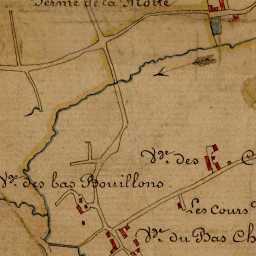 Ferme de la Motte
Vge. des
Vge. des bas Bouillons.
Les Cours
Vge. du Bas Ch